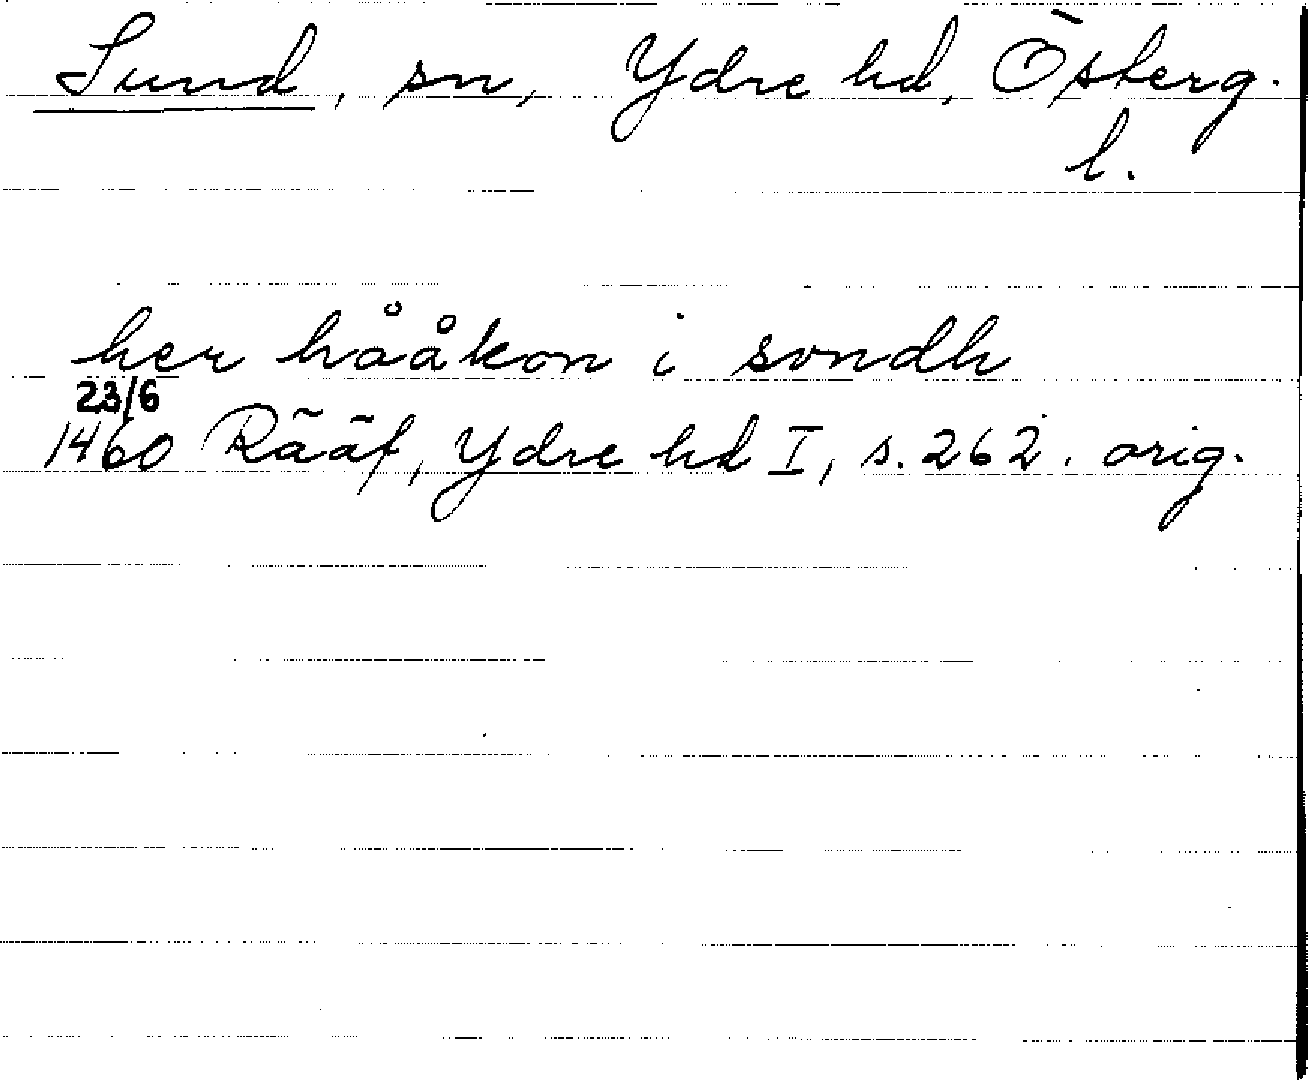 Sund, sn, Ydre hd, Österg.
l.
her hååkon i sondh
23/6
1460 Rääf, Ydre hd I, s. 262. orig.